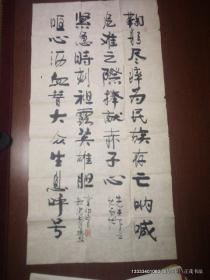 鞠躬尽瘁为民族存亡呐喊
危难之际捧献赤子心
紧急时刻袒露英雄胆
呕心沥血替大众生息呼号
13333401063